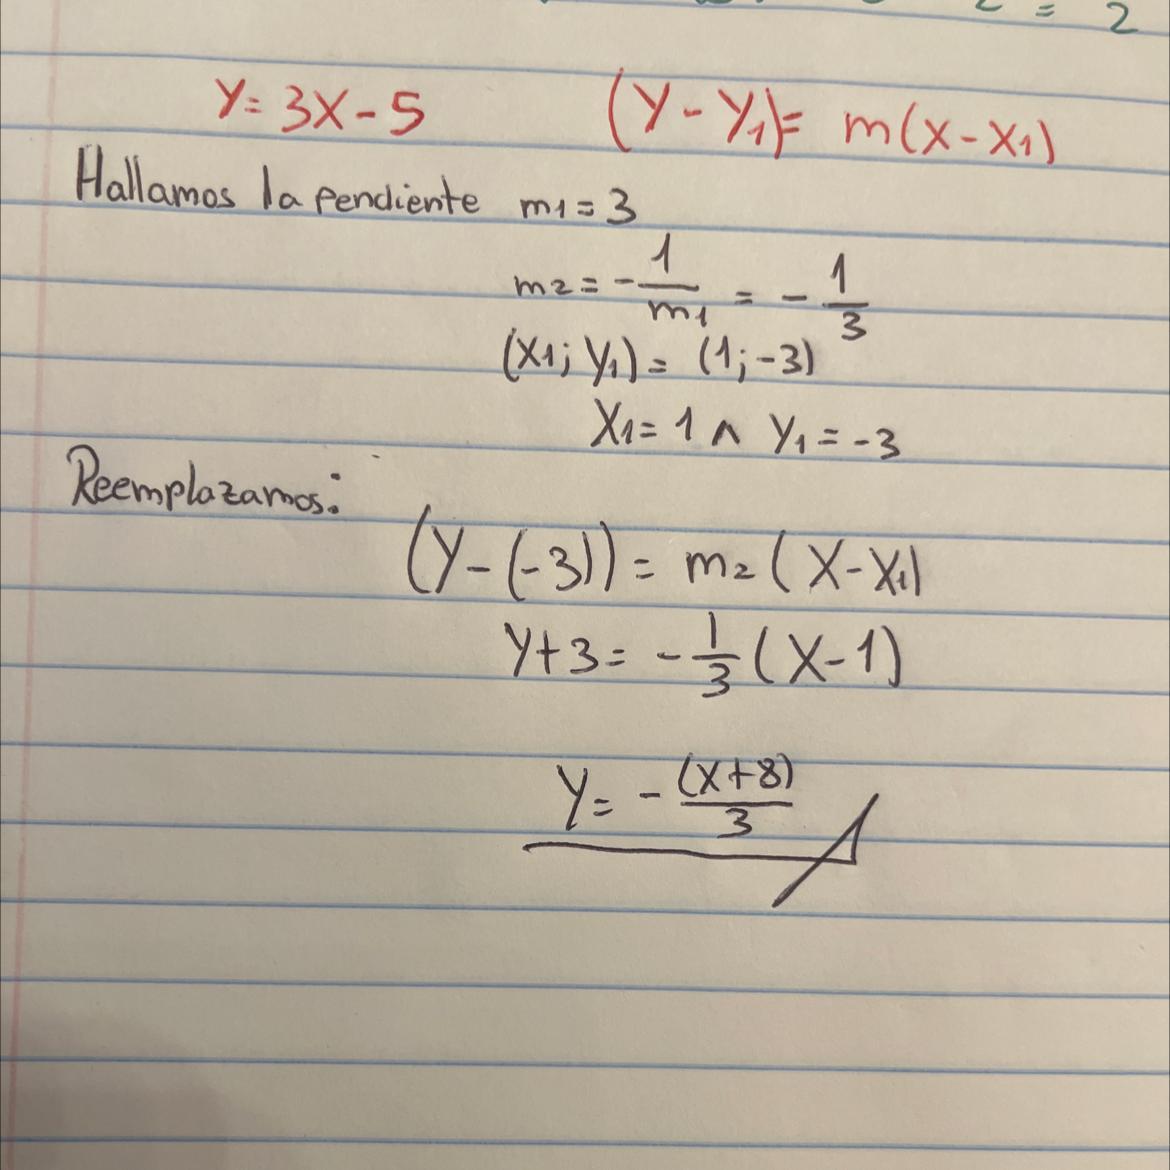 2 = 2
Y = 3X - 5 (Y - Y₁) = m(X - X₁)
Hallamos la pendiente m₁ = 3
m₂ = - 1/m₁ = - 1/3
(X₁; Y₁) = (1; -3)
X₁ = 1 ∧ Y₁ = -3
Reemplazamos:
(Y - (-3)) = m₂ (X - X₁)
Y + 3 = - 1/3 (X - 1)
Y = - (X + 8)/3